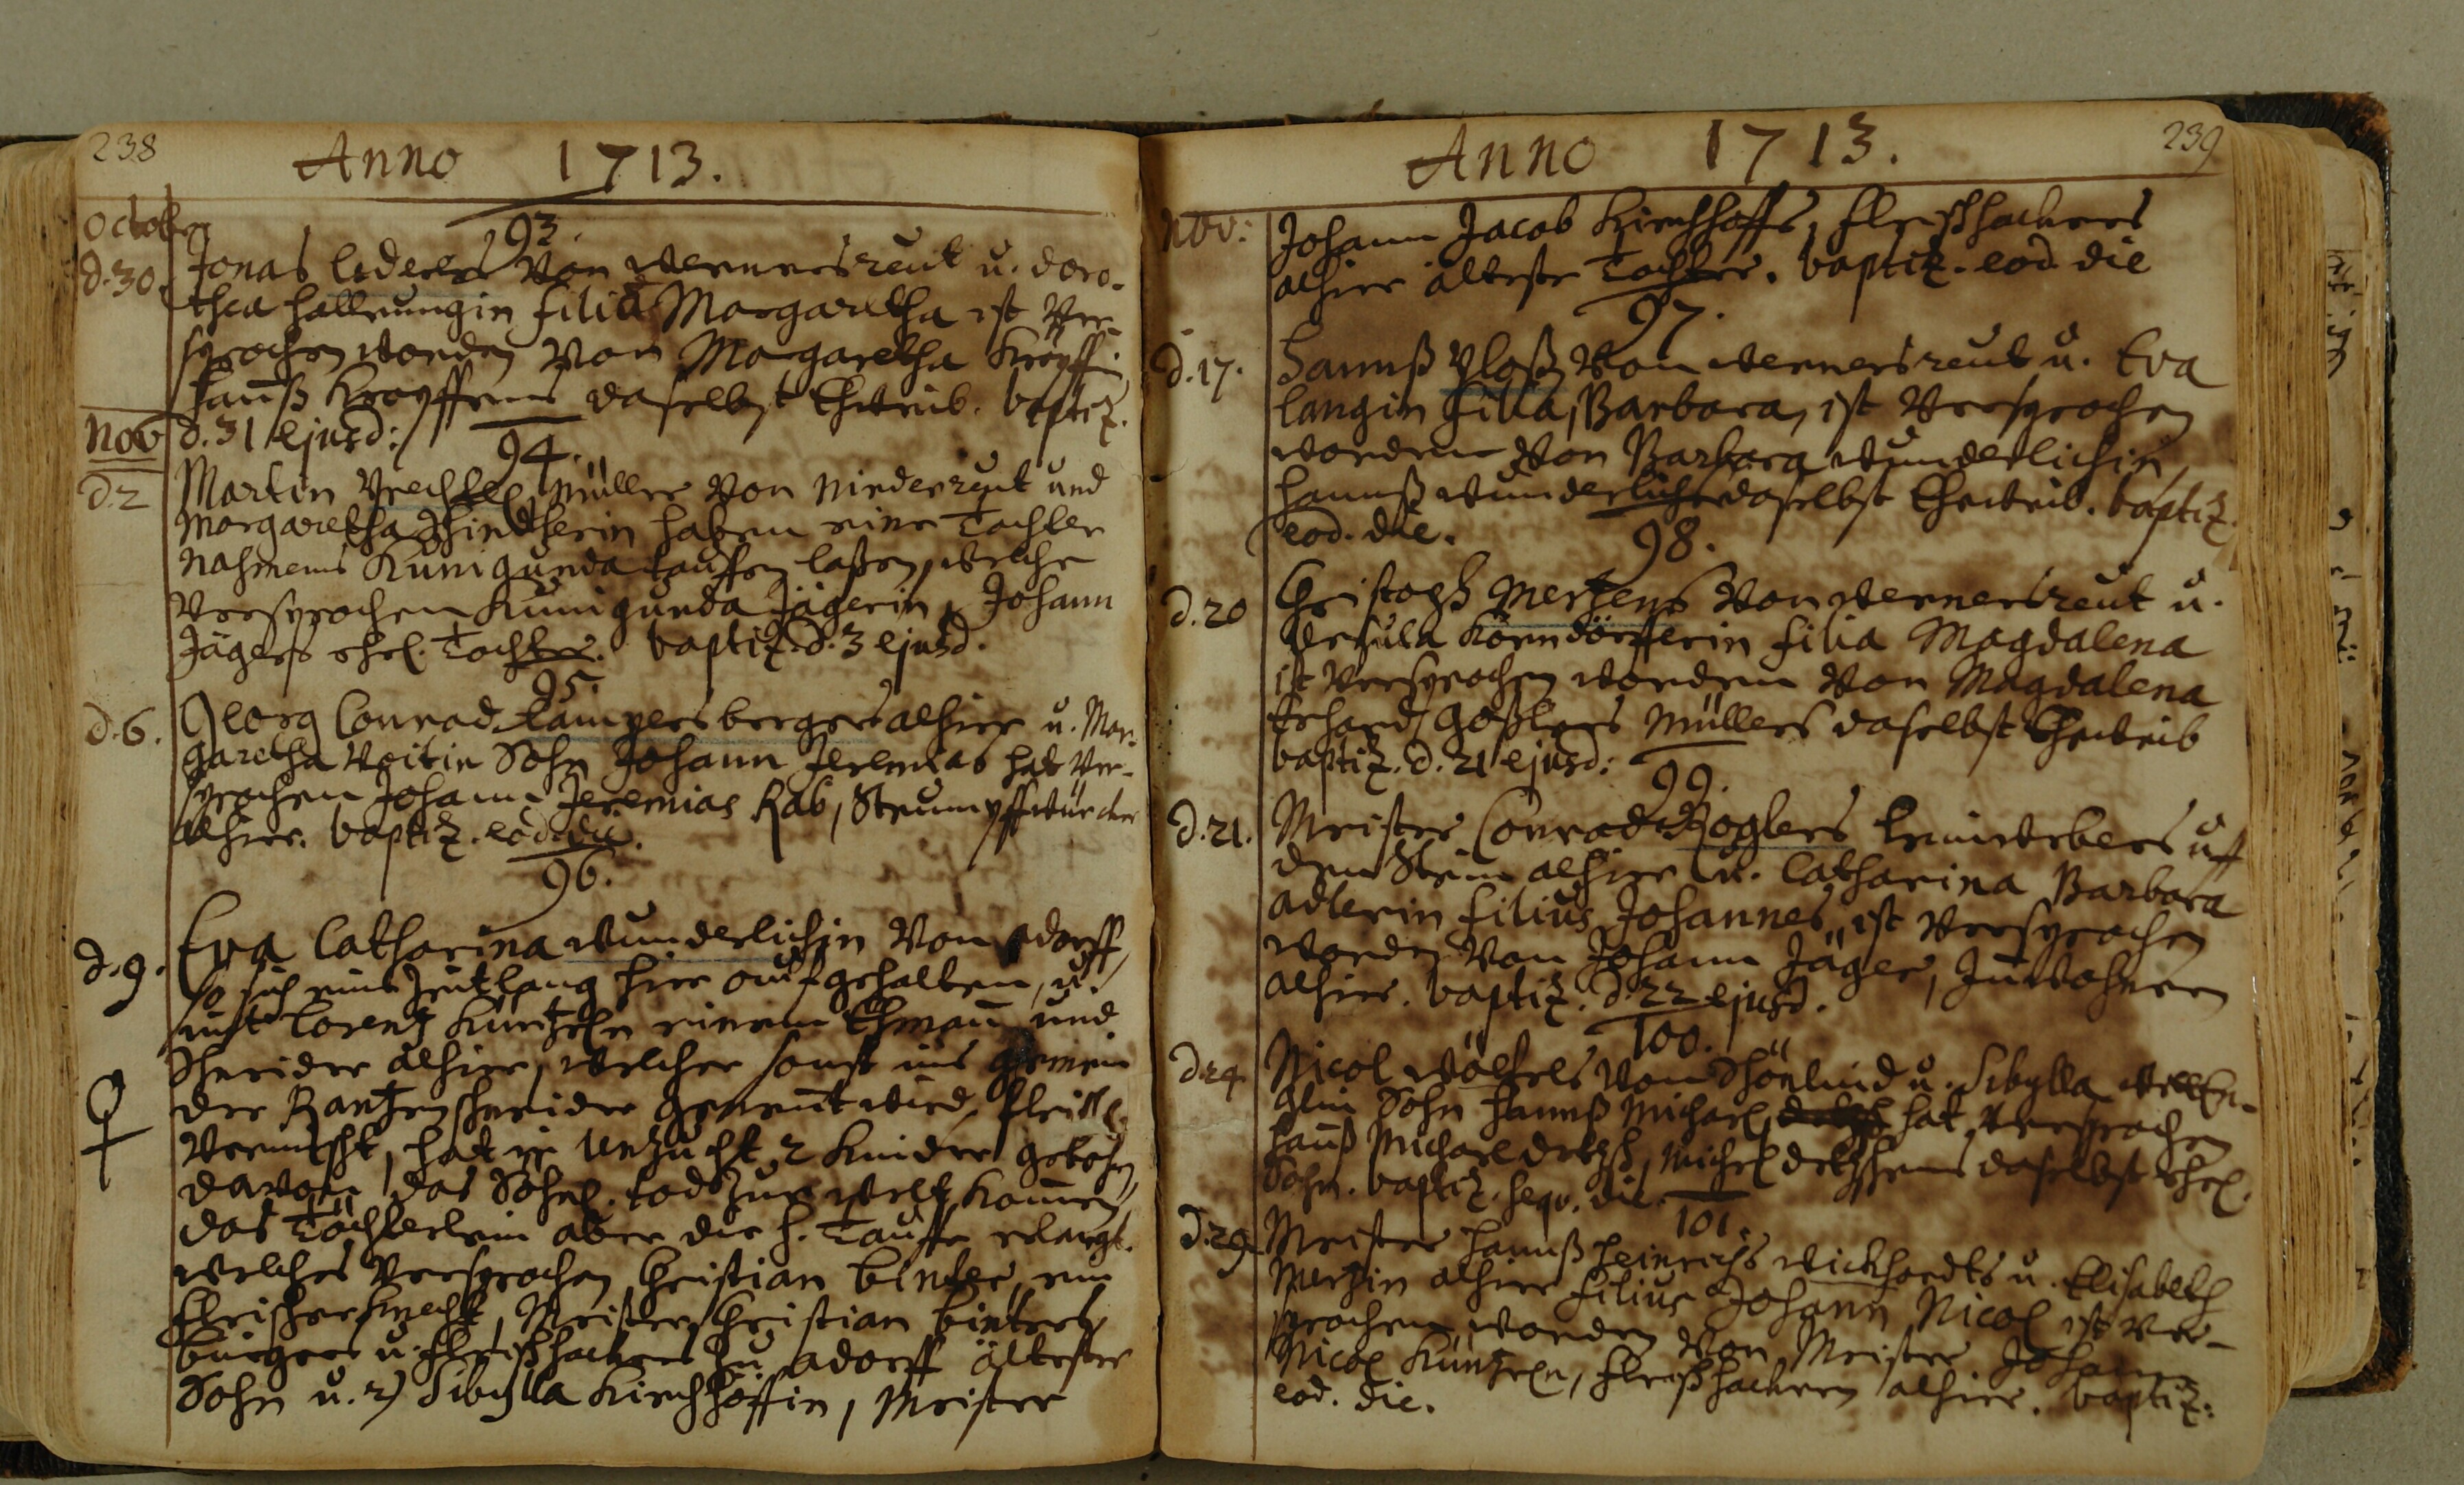 238
Anno 1713.
October
93.
d. 30. Jonas Lederers von Wernersreut u. Doro-
thea Hallrungin filia Margaretha ist ver-
sprochen worden von Margaretha
Hannß daselbst Eheweib. baptiz.
Nov d. 31 ejusd:
94.
d. 2 Martin Müller von Niederreut und
Margaretha haben eine Tochter
Nahmens Kunigunda tauffen laßen, welche
versprochen Kunigunda Jägerin, Johann
Jägers ehel. Tochter. baptiz. d. 3 ejusd.
95.
d. 6. Georg Conrad Lampersbergers alhier u. Mar-
garetha Veitin Sohn Johann Jeremias hat ver-
sprochen Johann Jeremias Rab, Strumpffwürcker
alhier. baptiz. eod. die.
96.
d. 9. Eva Catharina Wunderlichin von Adorff,
so sich eine Zeitlang hier aufgehalten, u.
mit Lorentz Küntzeln einem Ehmann und
Schneider alhier, welcher sonst ins gemein
der Rantzenschneider genennt wird, fleischl.
vermischt, hat in Unzucht 2 Kinder gebohrn,
davon das Söhnl. tod zur welt kommen,
das Töchterlein aber die H. Tauffe erlangt.
welches versprochen Christian Binter, ein
Fleischerknecht, Meister Christian Binters,
burgers u. Fleischhackers zu Adorff ältester
Sohn u. 2) Sibylla Kirchhoffin, Meister
239
Anno 1713.
Nov: Johann Jacob Kirchhoffs, Fleischhackers
alhier älteste Tochter. baptiz. eod. die
97.
d. 17. Hannß Ploß von Wernersreut u. Eva
Langin filia, Barbara, ist versprochen
worden von Barbara Wunderlichin,
Hannß Wunderlichs daselbst Eheweib. baptiz.
eod. die.
98.
d. 20 Christoph Mertzens von Wernersreut u.
Ursula Korndörfferin filia Magdalena
ist versprochen worden von Magdalena
Erhard Goßlers Müllers daselbst Eheweib
baptiz. d. 21 ejusd:
99.
d. 21. Meister Conrad Koglers Leinwebers uff
dem Stein alhier u. Catharina Barbara
Adlerin filius Johannes, ist versprochen
worden von Johann Jäger, Inwohnern
alhier. baptiz. d. 22 ejusd.
100.
d. 24 Nicol Wölfels von Schönlind u. Sibylla
Sohn Hannß Michael hat versprochen
Hannß Michael Michel daselbst ehel.
Sohn. baptiz. sequ. die.
101.
d. 29. Meister Hannß Heinrichs Wickhardts u. Elisabeth
Mertzin alhier filius Johann Nicol ist ver-
sprochen worden von Meister Johann
Nicol Küntzeln, Fleischhackern alhier. baptiz.
eod. die.